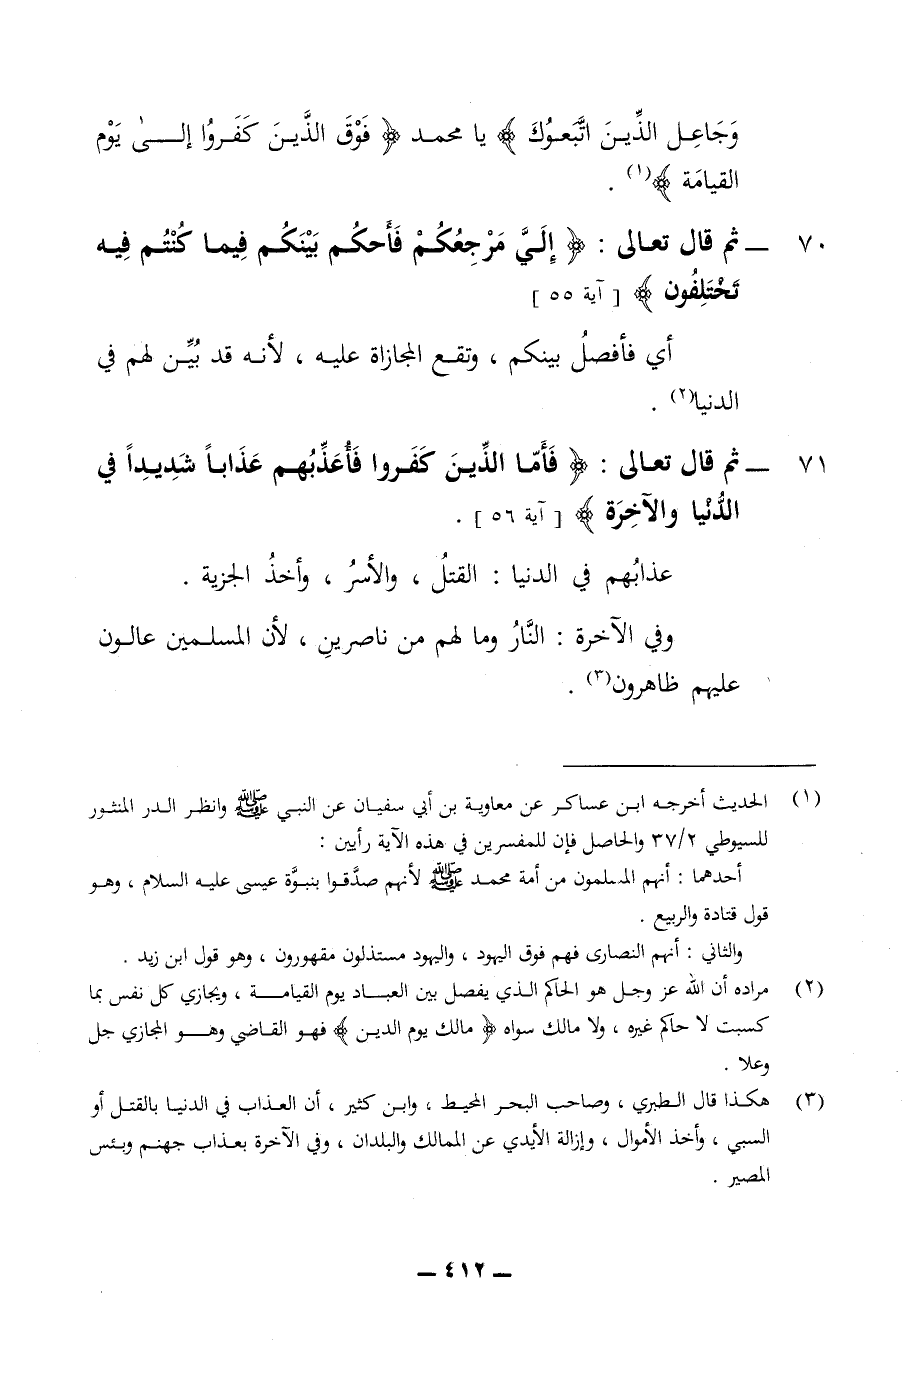 وَجَاعِل الذِّينَ اتَّبَعوُكَ ﴾ يا محمد ﴿ فَوْقَ الذَّينَ كَفَروُا إلى يَوْم
القيامَة ﴾(١) .
٧٠ ــ ثم قال تعالى : ﴿ إِلَيَّ مَرْجِعُكُمْ فَأَحكُم بَيْنَكُم فِيما كُنْتُم فِيه
تَخْتَلِفُون ﴾ [ آية ٥٥ ]
أي فأفصلُ بينكم ، وتقع المجازاة عليه ، لأنه قد بُيِّن لهم في
الدنيا(٢) .
٧١ ــ ثم قال تعالى : ﴿ فَأَمّا الذِّينَ كَفَروا فَأُعَذِّبُهم عَذَاباً شَدِيداً في
الدُّنْيا والآخِرَة ﴾ [ آية ٥٦ ] .
عذابُهم في الدنيا : القتلُ ، والأسرُ ، وأخذُ الجزية .
وفي الآخرة : النَّارُ وما لهم من ناصرينِ ، لأن المسلمين عالون
عليهم ظاهرون(٣) .
(١) الحديث أخرجه ابن عساكر عن معاوية بن أبي سفيان عن النبي ﷺ وانظر الدر المنثور
للسيوطي ٣٧/٢ والحاصل فإن للمفسرين في هذه الآية رأيين :
أحدهما : أنهم المسلمون من أمة محمد ﷺ لأنهم صدَّقوا بنبوَّة عيسى عليه السلام ، وهو
قول قتادة والربيع .
والثاني : أنهم النصارى فهم فوق اليهود ، واليهود مستذلون مقهورون ، وهو قول ابن زيد .
(٢) مراده أن الله عز وجل هو الحاكم الذي يفصل بين العباد يوم القيامة ، ويجازي كل نفس بما
كسبت لا حاكم غيره ، ولا مالك سواه ﴿ مالك يوم الدين ﴾ فهو القاضي وهو المجازي جل
وعلا .
(٣) هكذا قال الطبري ، وصاحب البحر المحيط ، وابن كثير ، أن العذاب في الدنيا بالقتل أو
السبي ، وأخذ الأموال ، وإزالة الأيدي عن الممالك والبلدان ، وفي الآخرة بعذاب جهنم وبئس
المصير .
ــ ٤١٢ ــ